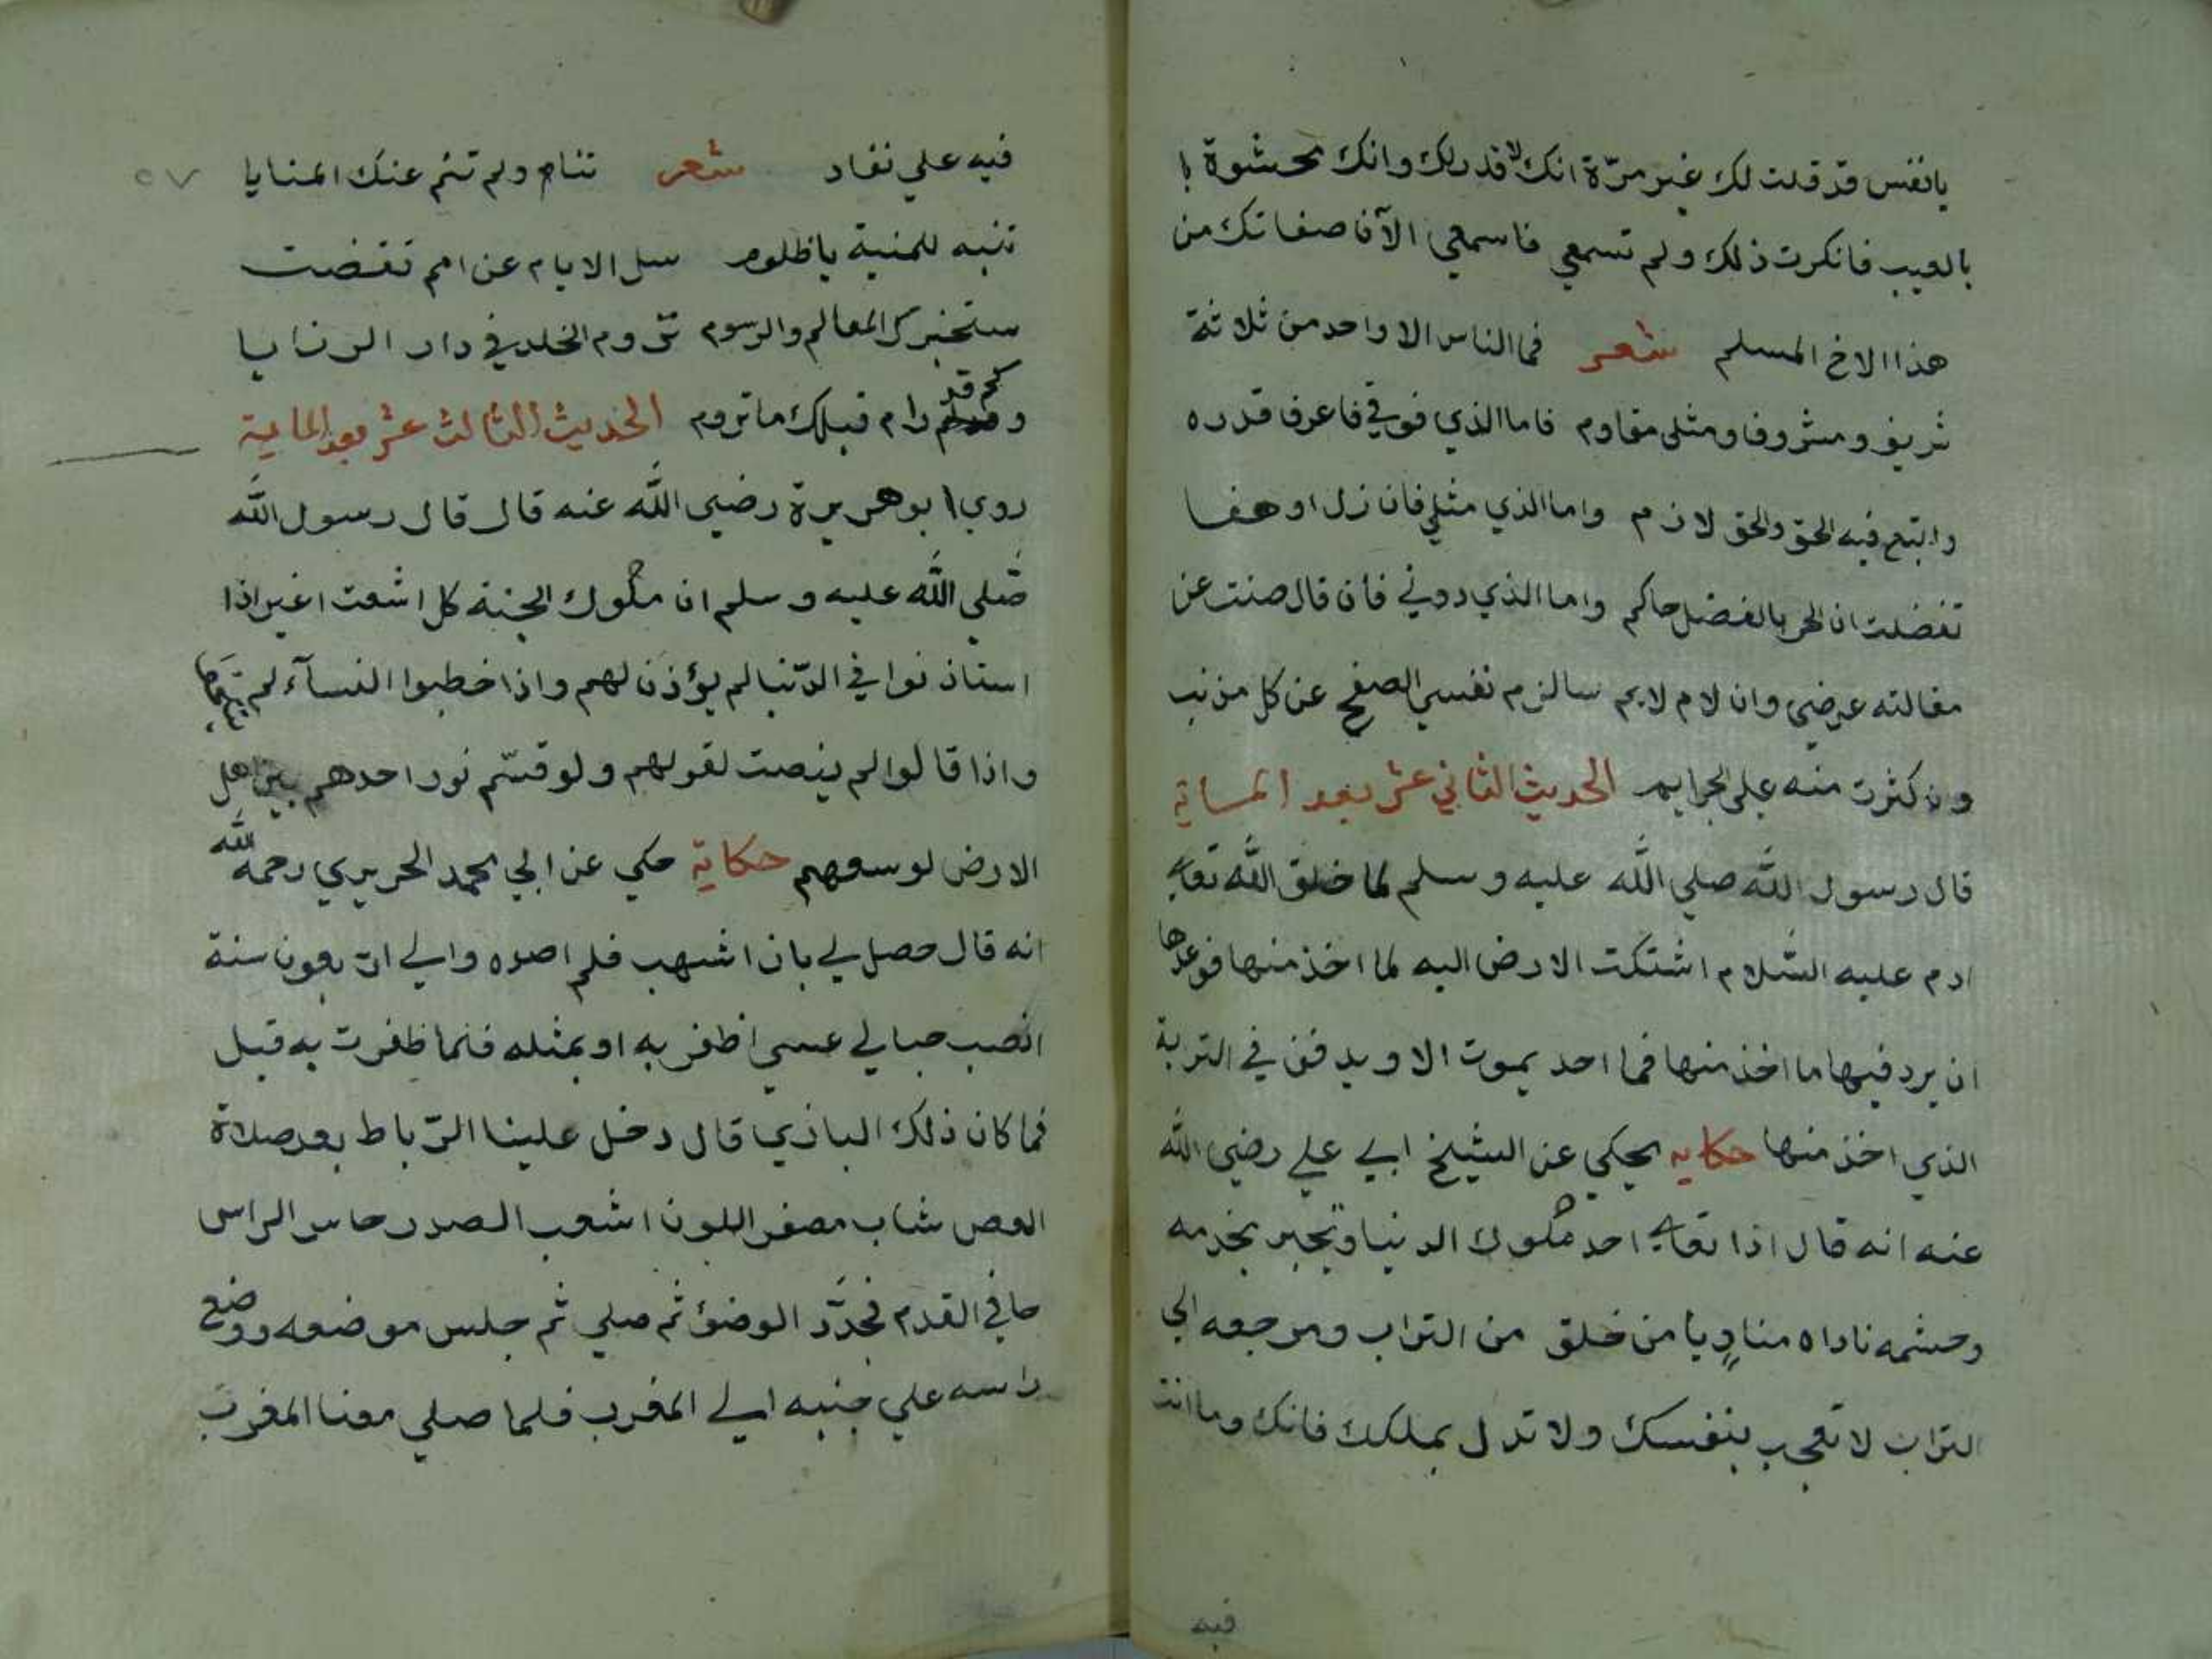 يانفس قد قلت لك غير مرّة انك لا قدر لك وانك محشوة با
بالعيب فانكرت ذلك ولم تسمعي فاسمعي الآن صفاتك من
هذا الاخ المسلم شعر فما الناس الا واحد من ثلاثة
شريف ومشروف ومثلي مقاوم فاما الذي فوقي فاعرف قدره
واتبع فيه الحق والحق لازم واما الذي مثلي فان زل او هفا
تفضلت ان الحر بالفضل حاكم واما الذي دوني فان قال صنت عن
مقالته عرضي وان لام لايم سالزم نفسي الصفح عن كل مذنب
وان كثرت منه علي الجرايم الحديث الثاني عشر بعد الماية
قال رسول الله صلي الله عليه وسلم لما خلق الله تعالي
ادم عليه السّلام اشتكت الارض اليه لما اخذ منها فوعدها
ان يرد فيها ما اخذ منها فما احد يموت الا ويدفن في التربة
الذي اخذ منها حكايه يحكي عن الشيخ ابي علي رضي الله
عنه انه قال اذا احد ملوك الدنيا وتجبر بخدمه
وحشمه ناداه منادٍ يا من خلق من التراب ومرجعه الي
التراب لا تعجب بنفسك ولا تدل بملكك فانك وما انت
فيه
٥٧
فيه علي نفاد شعر تنام ولم تنم عنك المنايا
تنبه للمنية يا ظلوم سل الايام عن امم تقضت
ستخبرك المعالم والرسوم تروم الخلد في دار الرنايا
وكم قد رام قبلك ما تروم الحديث الثالث عشر بعد الماية
روي ابو هريرة رضي الله عنه قال قال رسول الله
صلي الله عليه وسلم ان ملوك الجنة كل اشعت اغبر اذا
استاذنوا في الدّنيا لم يؤذن لهم واذا خطبوا النسآء لم
واذا قالوا لم ينصت لقولهم ولو قسّم نور احدهم بين اهل
الارض لوسعهم حكاية حكي عن ابي محمد الحريري رحمه الله
انه قال حصل لي باز اشهب فلم اصده والي اربعون سنة
انصب حبالي عسي اظفر به او بمثله فلما ظفرت به قيل
فما كان ذلك البازي قال دخل علينا الرّباط بعد صلاة
العصر شاب مصفر اللون اشعب الصدر حاسر الراس
حافي القدم فجدّد الوضؤ ثم صلي ثم جلس موضعه ووضع
راسه علي جنبه الي المغرب فلما صلي معنا المغرب